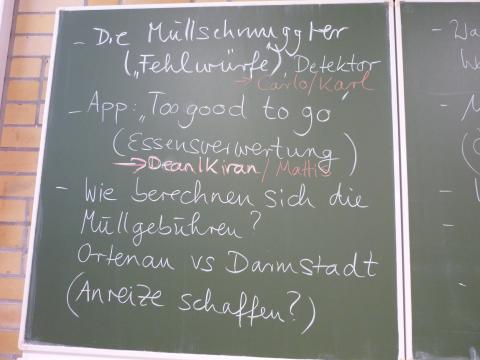 - Die Müllschmuggler
("Fehlwürfe") Detektor
→ Carlo/Karl
- App: "Too good to go"
(Essensverwertung)
→ Dean/Kiran/Mattis
- Wie berechnen sich die
Müllgebühren?
Ortenau vs Darmstadt
(Anreize schaffen?)